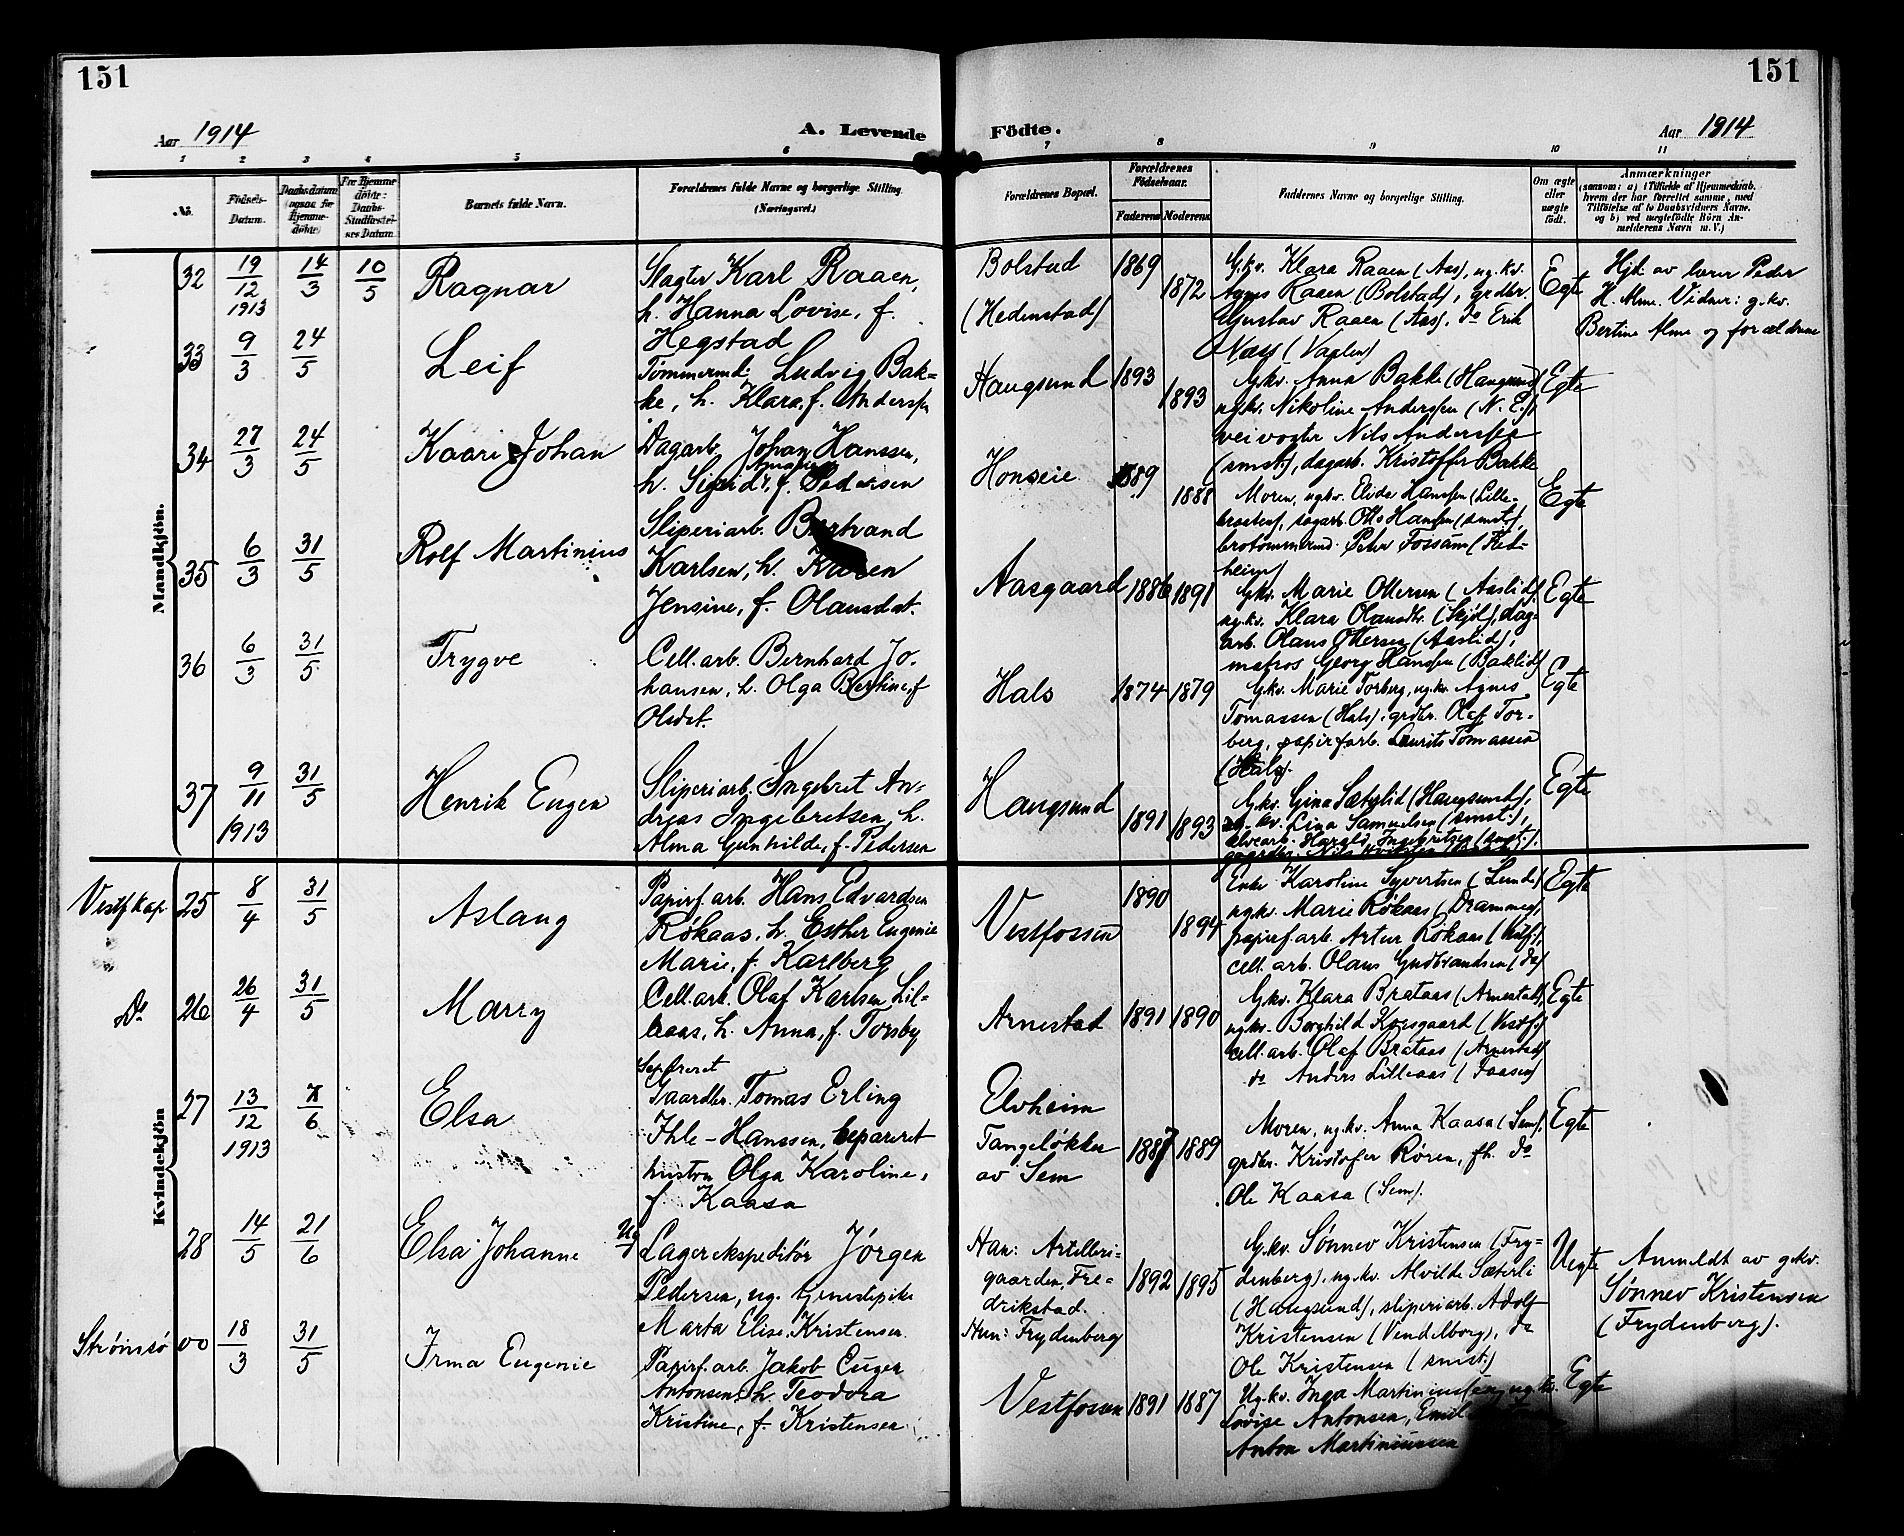 151
151
Aar 1914
A. Levende Födte.
Aar 1914
1 2 3 4 5 6 7 8 9 10 11
No.
Födsels-Datum.
Daabsdatum
For Hjemmedöbte: Daabs-Stadfæstelses Datum.
Barnets fulde Navn.
Forældrenes fulde Navne og borgerlige Stilling.
(Næringsvei.)
Forældrenes Bopæl.
Forældrenes Födselsaar.
Faderens Moderens
Faddernes Navne og borgerlige Stilling.
Om ægte eller uægte födt.
Anmærkninger
(saasom: a) i Tilfælde af Hjemmedaab, hvem der har forrettet samme, med Tilföielse af to Daabsvidners Navne, og b) ved uægtefödte Börn Anmelderens Navn m. V.)
Mandkjön.
32 19/12 1913 14/3 10/5 Ragnar
Slagter Karl Raaen,
h. Hanna Lovise, f.
Hegstad
Bolstad
(Hedenstad)
1869 1872
Gkv. Klara Raaen (Aas), ug.kv.
Agnes Raaen (Bolstad), grdbr.
Gustav Raaen (Aas), do Erik
Næss (Vaalen)
Egte
Hjd. av lærer Peder
H. Alme. Vidner: g.kv.
Bertine Alme og forældrene
33 9/3 24/5 Leif
Tømmermd. Ludvig Bak-
ke, h. Klara, f. Anderssen
Haugsund 1893 1893
Gkv. Anna Bakke (Haugsund)
ugkv. Nikoline Anderssen (N. E.),
veivogter Nils Anderssen
(smst.), dagarb. Kristoffer Bakke
Egte
34 27/3 24/5 Kaare Johan
Dagarb. Johan Hanssen,
h. Sigrid Amalie, f. Pedersen
Honseie 1889 1888
Moren, ugkv. Elida Hanssen (Lille-
braaten), sagarb. Otto Hanssen (smst.),
brotømmermd. Peter Fossum (Fred-
heim)
Egte
35 6/3 31/5 Rolf Martinius
Sliperiarb. Bertrand
Karlsen, h. Karen
Jensine, f. Olausdat.
Aasgaard 1886 1891
Gkv. Marie Ottersen (Aaslid)
ug.kv. Klara Olausdtr. (Skjøl), dag-
arb. Olaus Ottersen (Aaslid),
matros Georg Hansen (Baklid)
Egte
36 6/3 31/5 Trygve
Cell.arb. Bernhard Jo-
hansen, h. Olga Bertine, f.
Olsdat.
Hals 1874 1879
Gkv. Marie Torberg, ug.kv. Agnes
Tomassen (Hals), grdbr. Olaf Tor-
berg, papirfarb. Laurits Tomassen
(Hals).
Egte
37 9/11 1913 31/5 Henrik Eugen
Sliperiarb. Ingebret An-
dreas Ingebretsen, h.
Alma Gunhilde, f. Pedersen
Haugsund 1891 1893
Gkv. Gina Sætrelid (Haugsund),
ug. kv. Lina Samuelsen (smst.),
elvearb. Harald Ingebretsen (smst.),
Egte
Kvindekjön
Vestf. kap. 25 8/4 31/5 Aslaug
Papirf.arb. Hans Edvardsen
Røkaas, h. Esther Eugenie
Marie, f. Karlberg
Vestfossen 1890 1894
Enke Karoline Syvertsen (Lunde)
ug.kv. Marie Røkaas (Drammen),
papirf.arb. Artur Røkaas (Vestf.),
cell. arb. Olaus Gudbrandsen (do)
Egte
Do 26 26/4 31/5 Marry
Cell.arb. Olaf Karlsen Lil-
leaas, h. Anna, f. Torsby
Arnestad 1891 1890
Gkv. Klara Brataas (Arnestad),
ug.kv. Borghild Korsgaard (Vestf.)
cell.arb. Olaf Brataas (Arnestad)
do Anders Lilleaas (Faasen)
Egte
27 13/12 1913 7/6 Elsa
Separeret
Gaardbr. Tomas Erling
Ihle-Hanssen, separeret
hustru Olga Karoline,
f. Kaasa
Elvheim
Tangeløkken
av Sem
1887 1889
Moren, ug.kv. Anna Kaasa (Sem),
grdbr. Kristofer Røren, fh. do
Ole Kaasa (Sem).
Egte
28 14/5 21/6 Elsa Johanne
Ug
Lagerekspeditør Jørgen
Pedersen, ug. tjenestepike
Marta Elise Kristensen
Han: Artilleri-
gaarden, Fre-
drikstad.
Hun: Frydenberg
1892 1895
Gkv. Sønnev Kristensen (Fry-
denberg), ug.kv. Alvilde Sæterli
(Haugsund), sliperiarb. Adolf
Kristensen (Vendelborg), do
Ole Kristensen (smst.)
Uegte
Anmeldt av g.kv.
Sønnev Kristensen
(Frydenberg).
Strømsø 00 18/3 31/5 Irma Eugenie
Papirf.arb. Jakob Eugen
Antonsen, h. Teodora
Kristine, f. Kristensen
Vestfossen 1891 1887
Ug.kv. Inga Martiniussen, ug.kv.
Lovise Antonsen, Emil
Anton Martiniussen
Egte